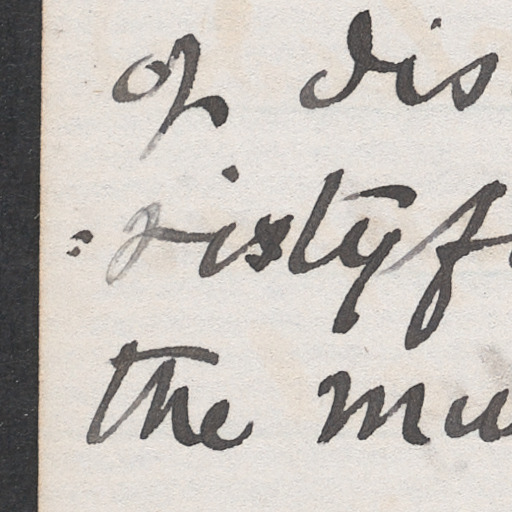 of dis
sixty f
the mu